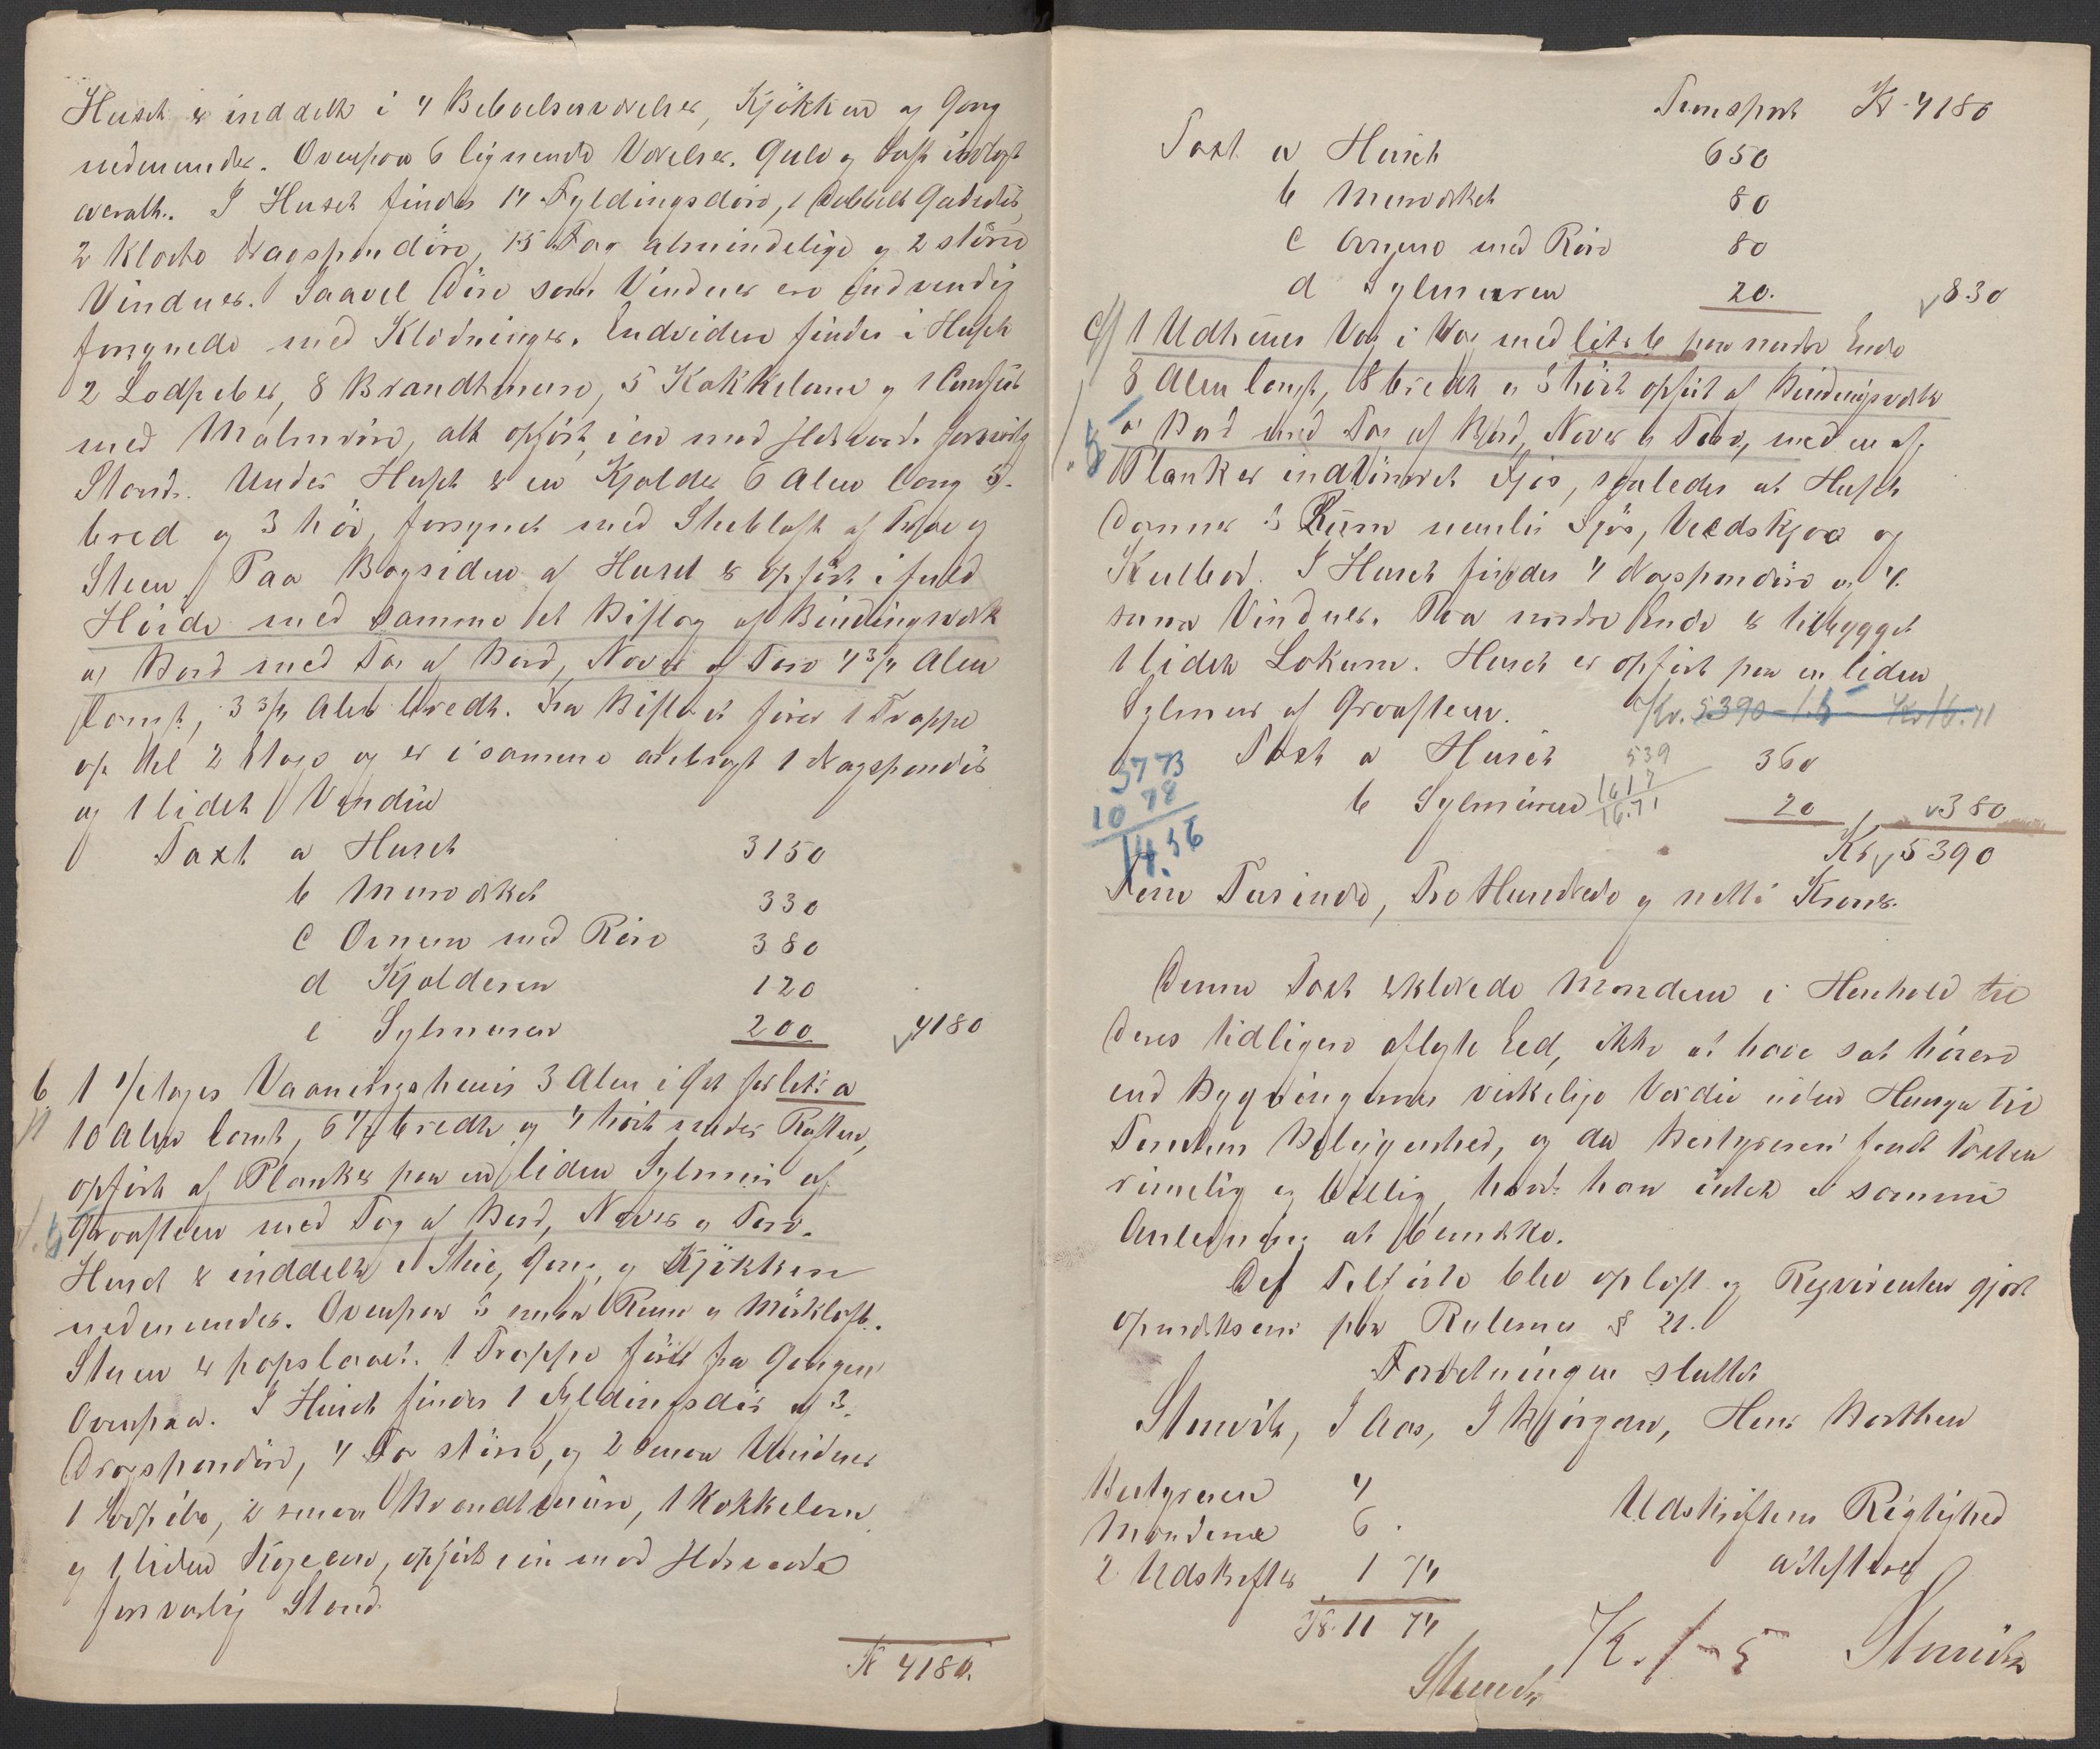 Huset er inddelt i 4 Beboelsesværelser, Kjökken og Gang
nedenunder. Ovenpaa 6 lignende Værelser. Gulv og Loft indlagt
overalt. I Huset findes 14 Fyldingsdöre, 1 dobbelt Gadedör,
2 Klædte Dragspendöre, 15 Fag almindelige og 2 större
Vinduer. Saavel Döre som Vinduer ere indvendig
forsynede med Klædninger. Endvidere findes i Huset
2 Lodpiber, 8 Brandtmure, 5 Kakkelovne og 1 Comfür
med Malmrör, alt opfört i en mod Ildsvaade forsvarlig
Stand. Under Huset er en Kjelder 6 Alen lang 5
bred og 3 höi, forsynet med Stubloft af Træ og
Steen. Paa Bagsiden af Huset er opfört i fuld
Höide med samme et Bislag af Bindingsværk
og Bord med Tag af Bord, Never og Torv 4 3/4 Alen
langt, 3 3/4 Alen bredt. Fra Bislaget förer 1 Trappe
op til 2 Etage og er i samme anbragt 1 Dragspendör
og 1 lidet Vindu
Taxt a Huset 3150
b Murværket 330
c Ovnene med Rör 380
d Kjelderen 120
e Sylmuren 200 4180
b 1 1/2 etages Vaaningshuus 3 Alen i Öst for litr a
10 Alen langt, 6 1/2 bredt og 4 höit under Raften,
opfört af Planker paa en liden Sylmur af
Graasteen med Tag af Bord, Never og Torv.
Huset er inddelt i Stue, Gang og Kjökken
nedenunder. Ovenpaa 3 smaa Rum og Mörkloft.
Stuen er papslaaet. 1 Trappe förer fra Gangen
Ovenpaa. I Huset findes 1 Fyldingsdör og 3
Dragspendöre, 4 Fag större, og 2 smaa Vinduer
1 Lodpibe, 2 smaa Brandtmure, 1 Kakkelovn
og 1 liden Kogeovn, opfört i en mod Ildsvaade
forsvarlig Stand.
Kr 4180.
Transport Kr 4180
Taxt a Huset 650
b Murværket 80
c Ovnene med Rör 80
d Sylmuren 20. 830
c) 1 Udhuus Væg i Væg med litr b paa nordre Ende
8 Alen langt, 8 bredt og 3 höit opfört af Bindingsværk
og Bord med Tag af Bord, Never og Torv, med en af
Planker indtömret Fjös, saaledes at Huset
danner 3 Rum nemlig Fjös, Vedskjaa og
Kulbod. I Huset findes 4 Dragspendöre og 4
smaa Vinduer. Paa nordre Ende er tilbygget
1 lidet Lokum. Huset er opfört paa en liden
Sylmur af Graasteen. Kr. 5390 - 1.5 - Kr 16.71
Taxt a Huset 539 360
5773 b Sylmuren 1617 20 380
10 78 16.71 Kr 5390
14.56
Fem Tusinde, Tre Hundrede og netti Kroner.
Denne Taxt erklærede Mændene i Henhold til
deres tidligere aflagte Eed, ikke at have sat höiere
end Bygningernes virkelige Værdie uden Hensyn til
Tomtens Beleigenhed, og da Bestyreren fandt Taxten
rimelig og billig, havde han intet i samme
Anledning at bemærke.
Det Tilförte blev oplæst og Reqvirenten gjort
opmærksom paa Reglernes § 21.
Forretningen sluttet
Steensvik, J Aas, J Björgan, Hans Barthen
Bestyreren 4
Mændene 6
2 Udskrifter 1 74
Kr. 11 74
Udskriftens Rigtighed
attesterer
K. 1 - 5